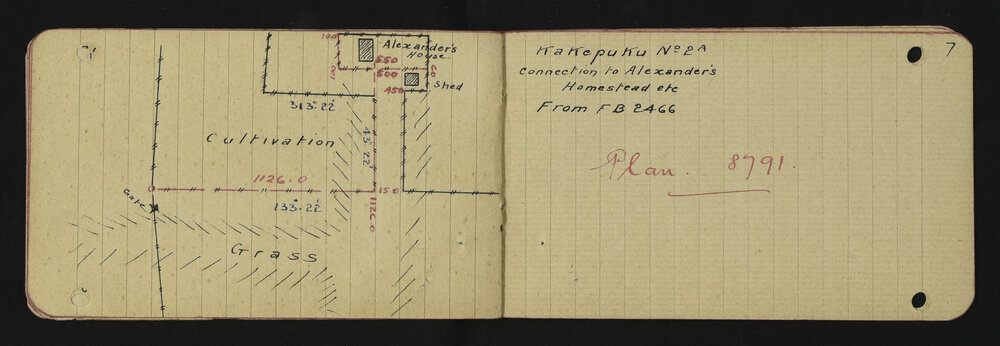 100
Alexander's
House
550
100
500
60
450
Shed
313°.22'
43.22
Cultivation
1126.0
Gate
133°.22'
150
1126.0
Grass
7
Kakepuku No 2A
Connection to Alexander's
Homestead etc
From FB 2466
Plan. 8791.